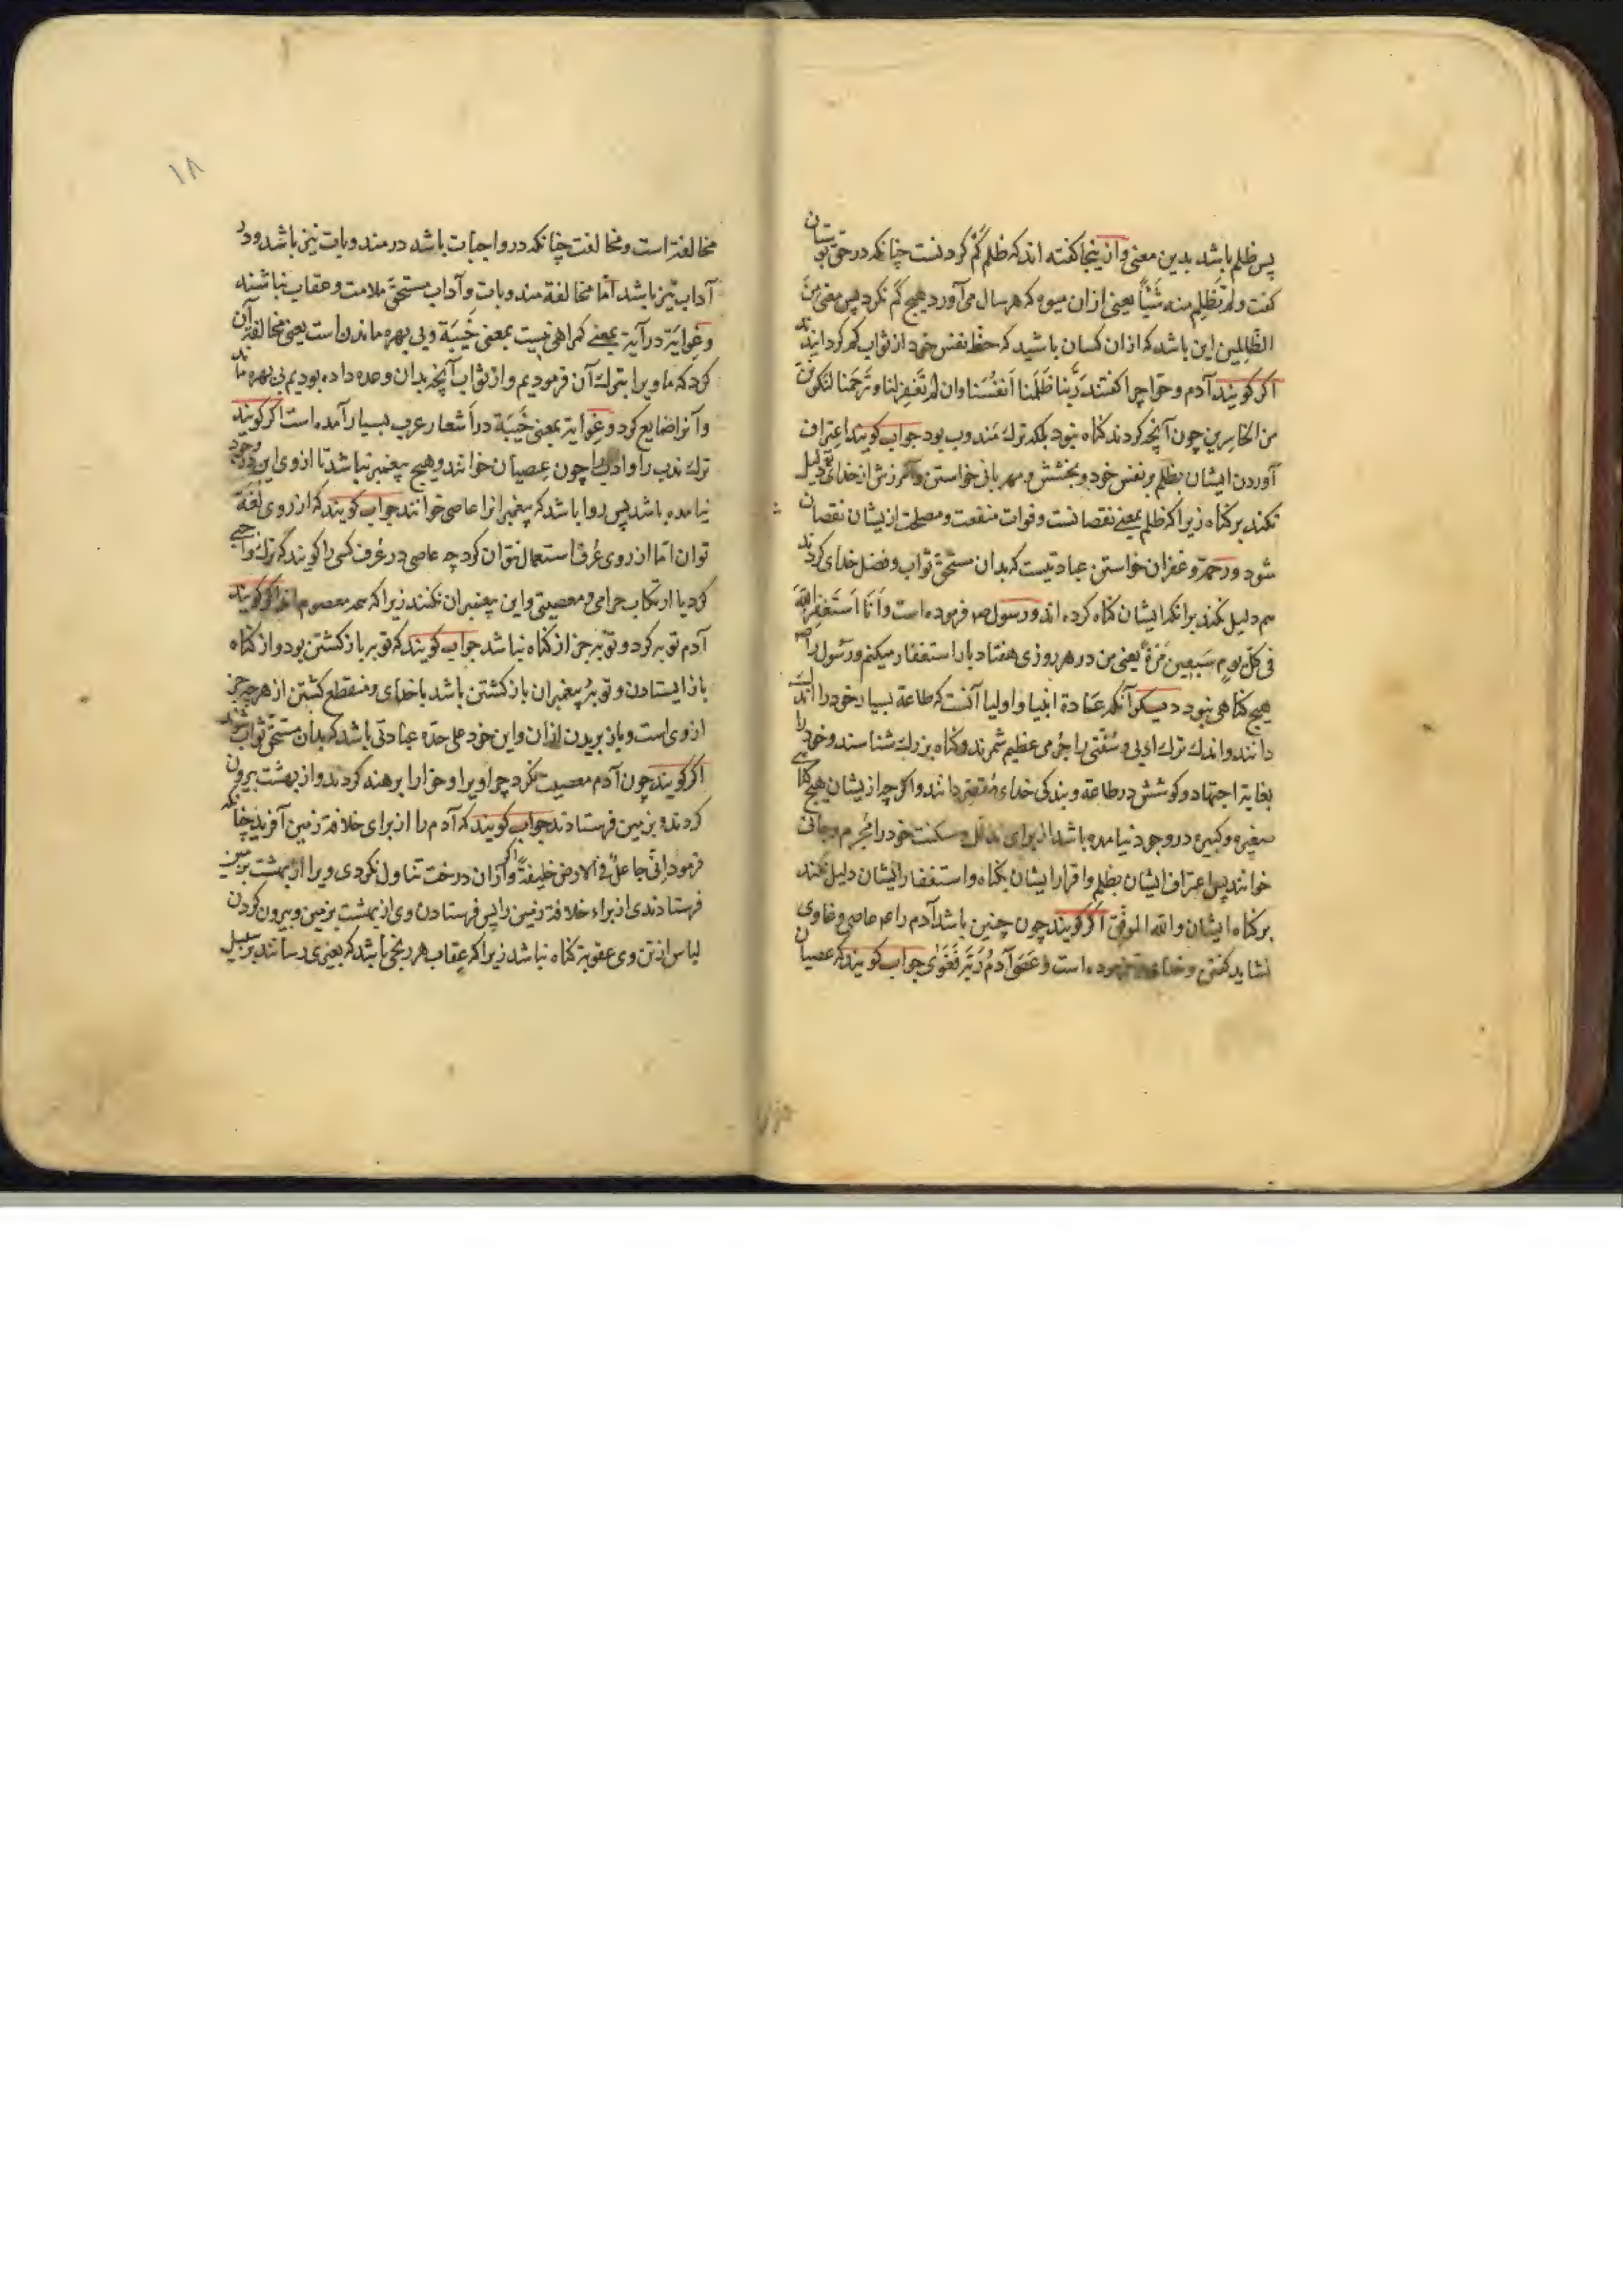 پس ظلم باشد بدین معنی و ازینجا گفته اند که ظلم کم کردنست چنانکه در حق بوستان
گفت ولم تظلم منه شیئاً یعنی از ان میوه که هر سال می آورد هیچ کم نکرد پس معنی من
الظالمین این باشد که از ان کسان باشید که حظ نفس خود از ثواب کم کردانند
اکر کویند آدم و حوا چرا کفتند ربّنا ظَلَمنا اَنفُسَنا وان لم تَغفِر لنا وتَرحَمنا لنکوننّ
من الخاسِرین چون آنچه کردند کناه نبود بلکه ترك مَندوب بود جواب کویند اعتراف
آوردن ایشان بظلم بر نفس خود و بخشش و مهربانی خواستن و آمرزش از خدای تع دلیل
نکند بر کناه زیرا که ظلم بمعنے نقصانست و فوات منفعت و مصلحت ازیشان نقصان
شود و رحمة و غفران خواستن عبادتیست که بدان مستحق ثواب و فضل خدای کردند
هم دلیل نکند برانکه ایشان کناه کرده اند و رسول صم فرموده است وَاَنَا اَستَغفِرُ اللهَ
فی کلّ یومٍ سَبعین مَرّةً یعنی من در هر روزی هفتاد بار استغفار میکنم و رسول را صم
هیچ کناهی نبود دیکر آنکه عادة انبیا و اولیا آنست که طاعة بسیار خود را اندك
دانند و اندك ترك ادبی و سُنّتی را جُرمی عظیم شمرند و کناه بزرك شناسند و خود را
بغایة اجتهاد و کوشش در طاعة و بندکی خدای مُقصّر دانند و اکر چه ازیشان هیچ کناهے
صغیره و کبیره در وجود نیامده باشد از برای تذلل و مسکنت خود را مُجرم و جانی
خوانند پس اعتراف ایشان بظلم و اقرار ایشان بکناه و استغفار ایشان دلیل نکند
بر کناه ایشان والله الموفّق اکر کویند چون چنین باشد آدم را عم عاصی و غاوی
نشاید کفتن و خدای فرموده است وَعَصَی آدمُ رَبَّه فَغَوَی جواب کویند که عصیان
۱۸
مخالفة است و مخالفت چنانکه در واجبات باشد در مندوبات نیز باشد و در
آداب نیز باشد امّا مخالفة مندوبات و آداب مستحقّ ملامت و عقاب نباشند
و غوایة در آیة بمعنے کمراهی نیست بمعنی خَیبَة و بی بهره ماندن است یعنی مخالفة آن
کرد که ما ویرا بترك آن فرمودیم و از ثواب آنچه بدان وعده داده بودیم بی بهره ماند
و آنرا ضایع کرد و غوایة بمعنی خَیبَة در اَشعار عرب بسیار آمده است اکر کویند
ترك ندب را و ادب را چون عِصیان خوانند و هیچ پیغمبر نباشد تا از وی این در وجود
نیامده باشد پس روا باشد که پیغمبرانرا عاصی خوانند جواب کویند که از روی لغة
توان امّا از روی عُرف استعمال نتوان کرد چه عاصی در عُرف کسی را کویند که ترك واجبے
کرد یا ارتکاب حرامی و معصیتی و این پیغمبران نکنند زیرا که همه معصوم اند اکر کویند
آدم توبه کرد و توبه جز از کناه نباشد جواب کویند که توبه باز کشتن بود و از کناه
باز ایستادن و توبهٔ پیغمبران باز کشتن باشد با خدای و منقطع کشتن از هر چه جز
از وی است و باز بریدن از ان و این خود علی حدة عبادتی باشد که بدان مستحق ثواب شوند
اکر کویند چون آدم معصیت نکرد چرا ویرا و حوّا را برهنه کردند و از بهشت بیرون
کردند و بزمین فرستادند جواب کویند که آدم را از برای خلافة زمین آفرید چنانکه
فرمود اِنّی جاعلٌ فی الارض خلیفةً و اکر ازان درخت تناول نکردی ویرا از بهشت بزمین
فرستادندی از براء خلافة زمین را پس فرستادن وی از بهشت بزمین و بیرون کردن
لباس از تن وی عقوبة کناه نباشد زیرا که عِقاب هر رنجی باشد که بغیری رسانند بر سبیل